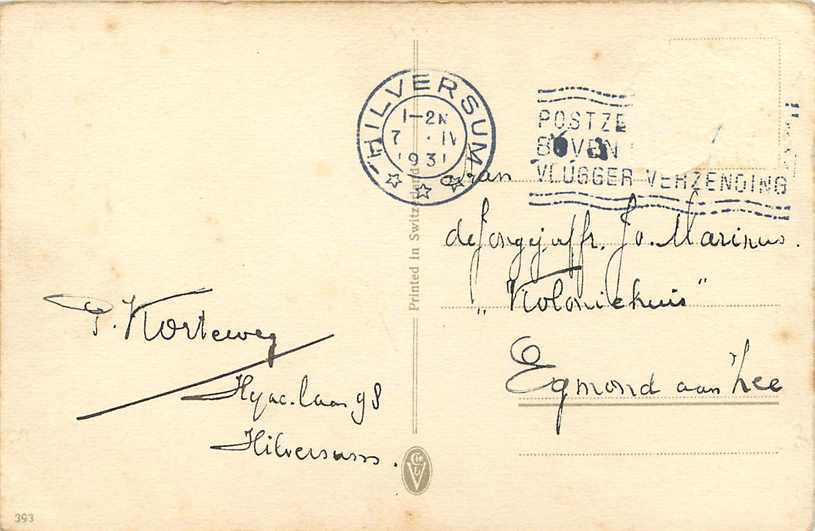 HILVERSUM
1-2N
7 . IV
1931
POSTZE
BOVEN
VLUGGER VERZENDING
Aan
de Jongejuffr. Jo. Marinus.
„Koloniehuis"
Egmond aan Zee
Printed in Switzerland
P. Korteweg
Hyac.laan 98
Hilversum.
393